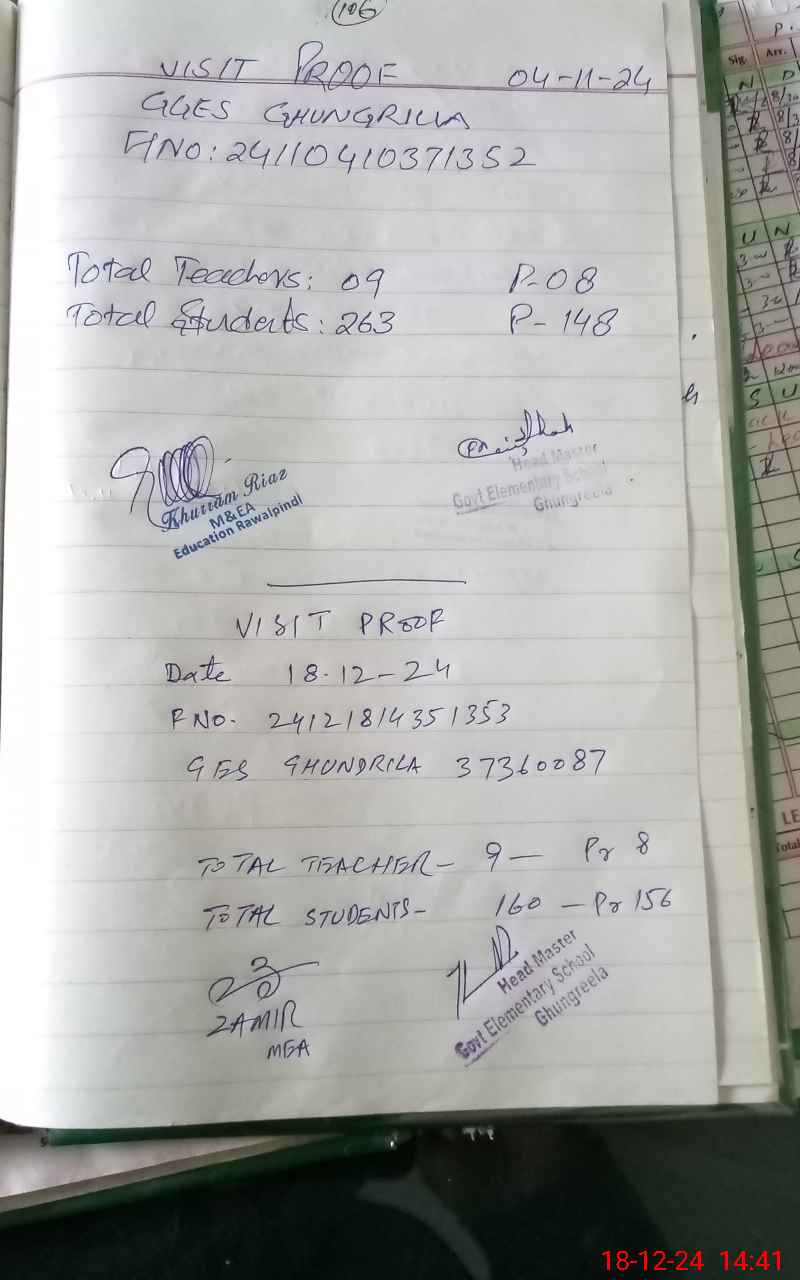 106
VISIT PROOF 04-11-24
GGES GHUNGRILLA
F/NO: 24110410371352
Total Teachers: 09 P-08
Total Students: 263 P-148
Khurram Riaz
M&EA
Education Rawalpindi
Head Master
Govt Elementary School
Ghungreela
VISIT PROOF
Date 18-12-24
F NO. 24121814351353
GES GHUNDRILA 37360087
TOTAL TEACHER- 9 — Pr 8
TOTAL STUDENTS- 160 — Pr 156
ZAMIR
MEA
Head Master
Govt Elementary School
Ghungreela
18-12-24 14:41